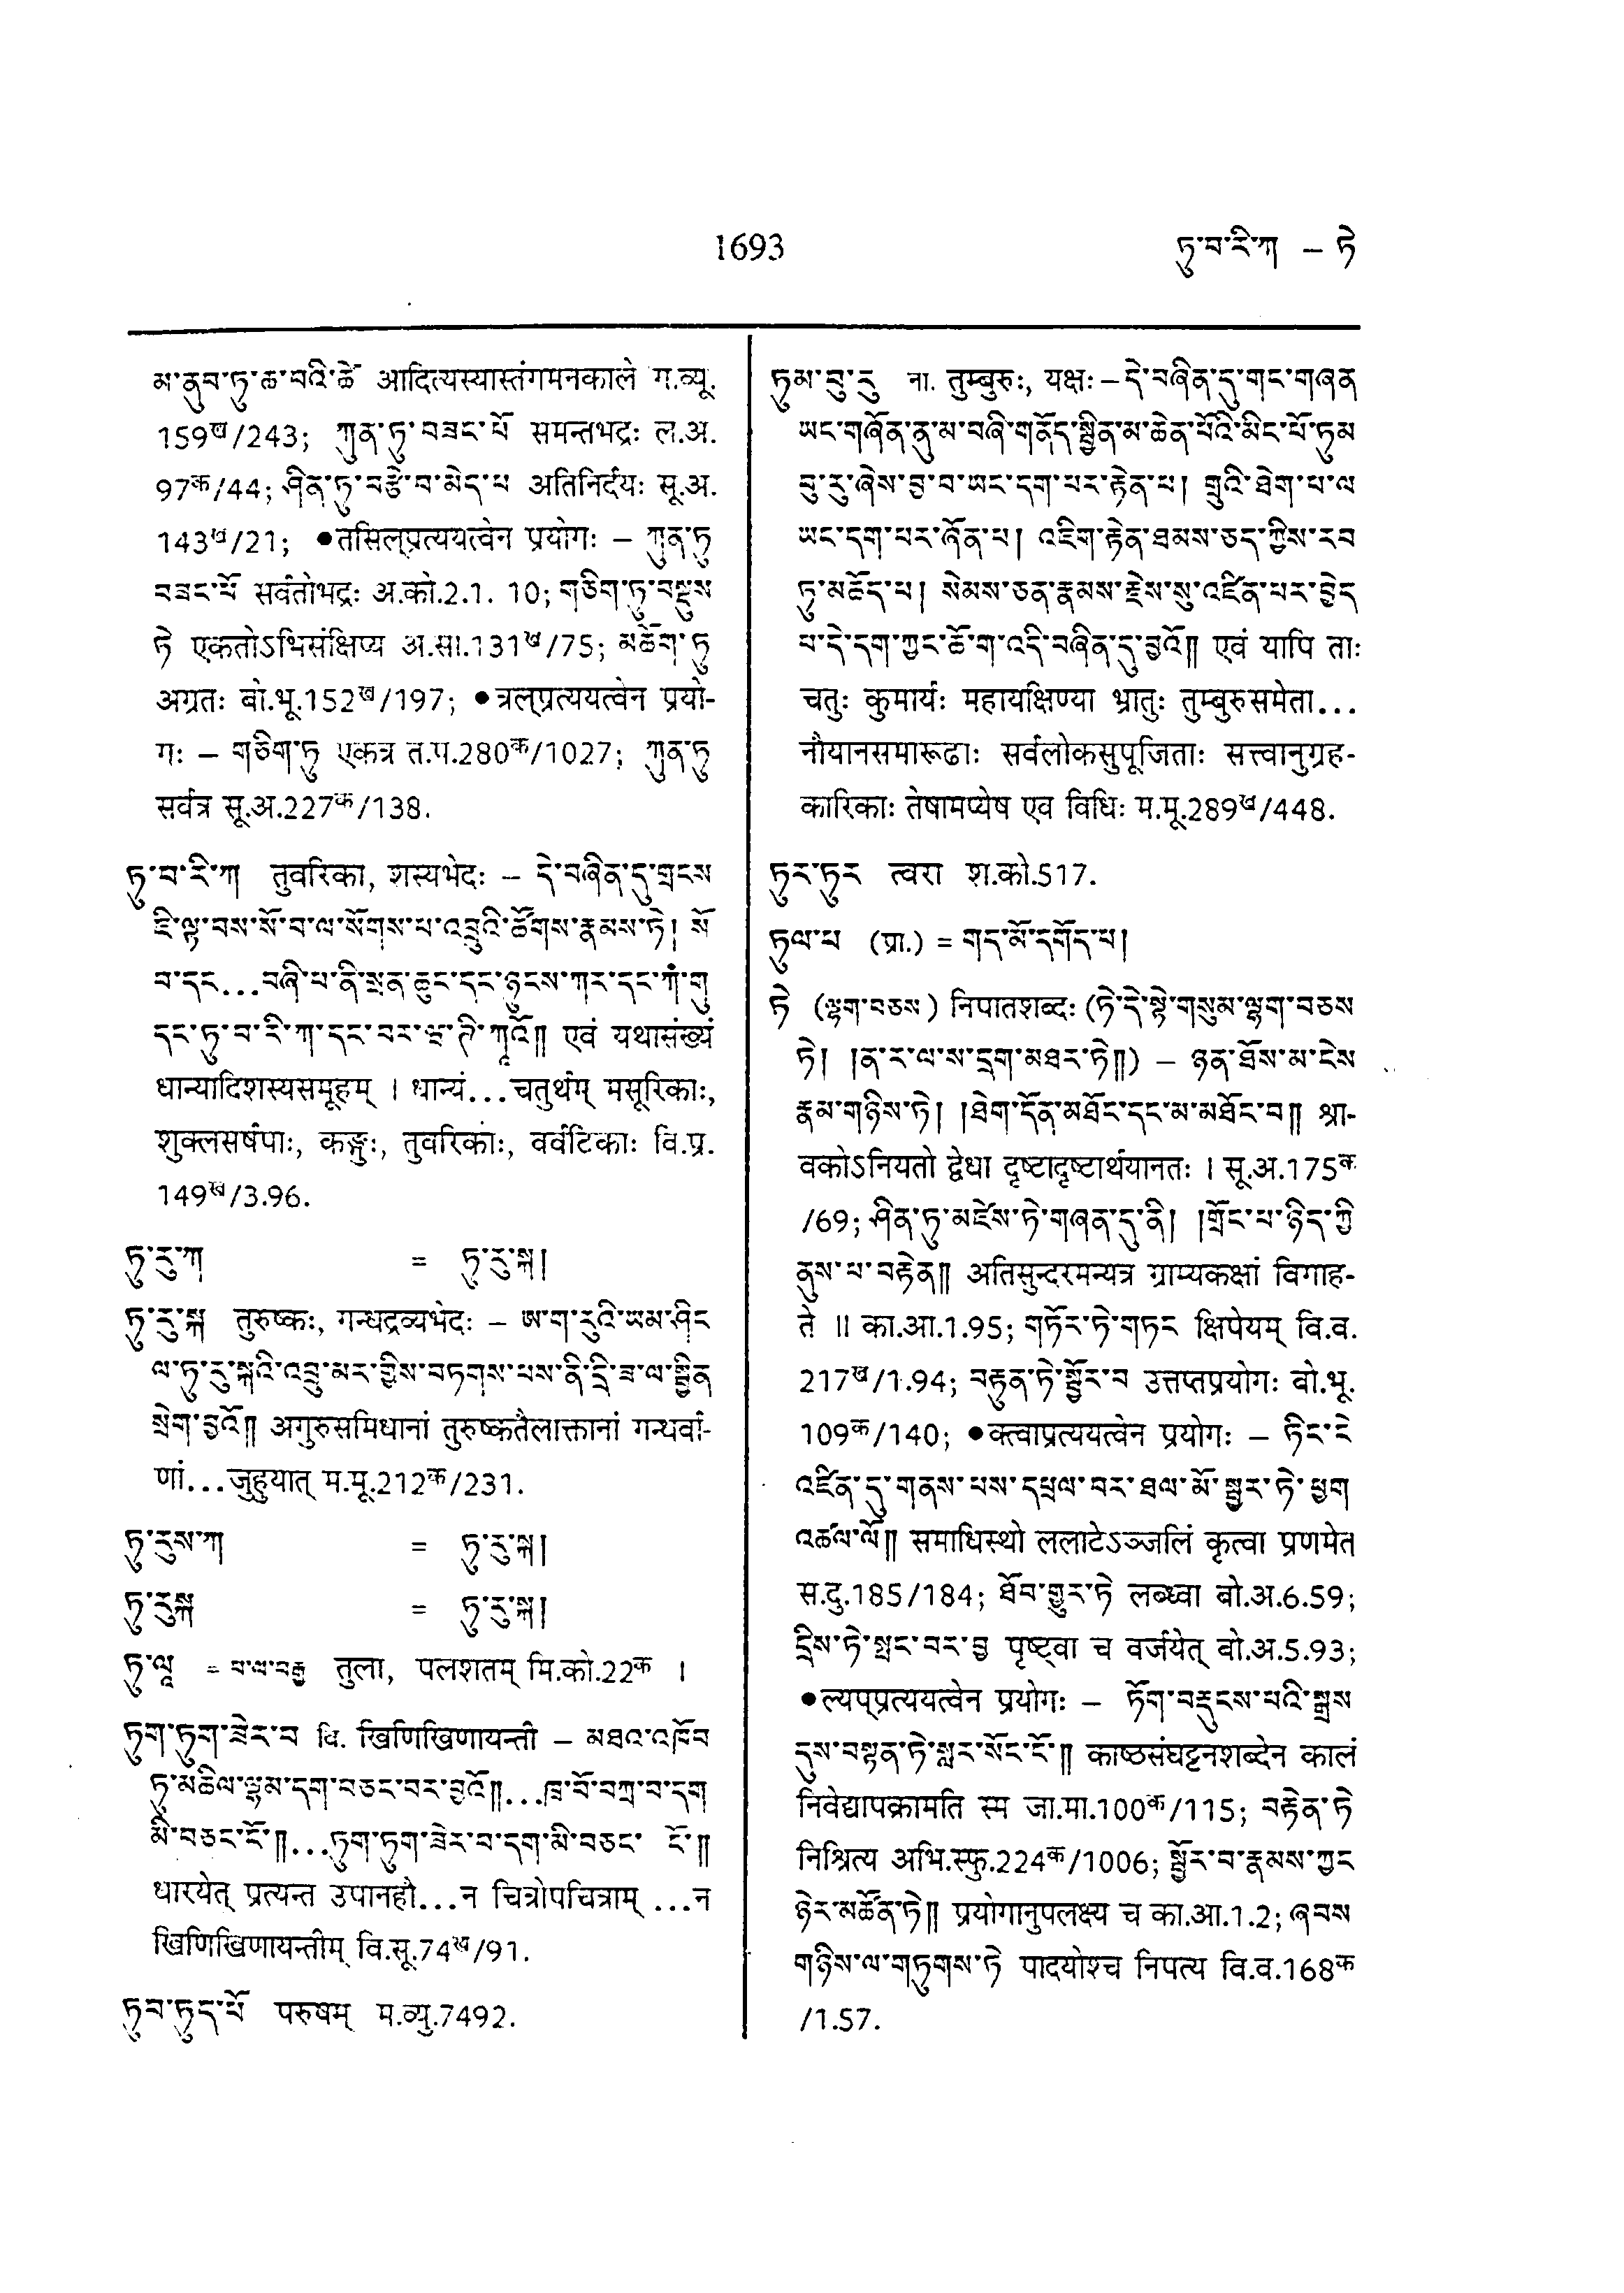 1693
ཏུ་བ་རི་ཀ – ཏེ
མ་ནུབ་ཏུ་ཆ་བའི་ཚེ་ आदित्यस्यास्तंगमनकाले ग.व्यू.
159ख/243; ཀུན་ཏུ་བཟང་པོ समन्तभद्रः ल.अ.
97क/44; ཤིན་ཏུ་བརྩེ་བ་མེད་པ अतिनिर्दयः सू.अ.
143ख/21; ●तसिल्प्रत्ययत्वेन प्रयोगः – ཀུན་ཏུ
བཟང་པོ सर्वतोभद्रः अ.को.2.1. 10; གཅིག་ཏུ་བསྡུས
ཏེ एकतोऽभिसंक्षिप्य अ.सा.131ख/75; མཆོག་ཏུ
अग्रतः बो.भू.152ख/197; ●त्रल्प्रत्ययत्वेन प्रयो-
गः – གཅིག་ཏུ एकत्र त.प.280क/1027; ཀུན་ཏུ
सर्वत्र सू.अ.227क/138.
ཏུ་བ་རི་ཀ तुवरिका, शस्यभेदः – དེ་བཞིན་དུ་གྲངས
ཇི་ལྟ་བས་སོ་བ་ལ་སོགས་པ་འབྲུའི་ཚོགས་རྣམས་ཏེ། སོ
བ་དང...བཞི་པ་ནི་སྲན་ཆུང་དང་ཉུངས་ཀར་དང་ཀཾ་གུ
དང་ཏུ་བ་རི་ཀ་དང་བར་ཝ་ཊི་ཀཱའོ॥ एवं यथासंख्यं
धान्यादिशस्यसमूहम् । धान्यं...चतुर्थम् मसूरिकाः,
शुक्लसर्षपाः, कङ्गुः, तुवरिकाः, वर्वटिकाः वि.प्र.
149ख/3.96.
ཏུ་རུ་ཀ = ཏུ་རུ་སྐ།
ཏུ་རུ་སྐ तुरुष्कः, गन्धद्रव्यभेदः – ཨ་ག་རུའི་ཡམ་ཤིང
ལ་ཏུ་རུ་སྐའི་འབྲུ་མར་གྱིས་བཏགས་པས་ནི་དྲི་ཟ་ལ་སྦྱིན
སྲེག་བྱའོ༎ अगुरुसमिधानां तुरुष्कतैलाक्तानां गन्धर्वा-
णां...जुहुयात् म.मू.212क/231.
ཏུ་རུས་ཀ = ཏུ་རུ་སྐ།
ཏུ་རུསྐ = ཏུ་རུ་སྐ།
ཏུ་ལཱ = བ་ལ་བརྒྱ तुला, पलशतम् मि.को.22क ।
ཏུག་ཏུག་ཟེར་བ वि. खिणिखिणायन्ती – མཐའ་འཁོབ
ཏུ་མཆིལ་ལྷམ་དག་བཅང་བར་བྱའོ༎...ཁྲ་བོ་བཀྲ་བ་དག
མི་བཅང་ངོ་༎...ཏུག་ཏུག་ཟེར་བ་དག་མི་བཅང་ ངོ་༎
धारयेत् प्रत्यन्त उपानहौ...न चित्रोपचित्राम् ...न
खिणिखिणायन्तीम् वि.सू.74ख/91.
ཏུབ་ཏུད་པོ परुषम् म.व्यु.7492.
ཏུམ་བུ་རུ ना. तुम्बुरुः, यक्षः – དེ་བཞིན་དུ་གང་གཞན
ཡང་གཞོན་ནུ་མ་བཞི་གནོད་སྦྱིན་མ་ཆེན་པོའི་མིང་པོ་ཏུམ
བུ་རུ་ཞེས་བྱ་བ་ཡང་དག་པར་རྟེན་པ། གྲུའི་ཐེག་པ་ལ
ཡང་དག་པར་ཞོན་པ། འཇིག་རྟེན་ཐམས་ཅད་ཀྱིས་རབ
ཏུ་མཆོད་པ། སེམས་ཅན་རྣམས་རྗེས་སུ་འཛིན་པར་བྱེད
པ་དེ་དག་ཀྱང་ཆོ་ག་འདི་བཞིན་དུ་བྱའོ༎ एवं यापि ताः
चतुः कुमार्यः महायक्षिण्या भ्रातुः तुम्बुरुसमेता...
नौयानसमारूढाः सर्वलोकसुपूजिताः सत्त्वानुग्रह-
कारिकाः तेषामप्येष एव विधिः म.मू.289ख/448.
ཏུར་ཏུར त्वरा श.को.517.
ཏུལ་པ (प्रा.) = གད་མོ་དགོད་པ།
ཏེ (ལྷག་བཅས) निपातशब्दः (ཏེ་དེ་སྟེ་གསུམ་ལྷག་བཅས
ཏེ། །ན་ར་ལ་ས་དྲག་མཐར་ཏེ༎) – ཉན་ཐོས་མ་ངེས
རྣམ་གཉིས་ཏེ། །ཐེག་དོན་མཐོང་དང་མ་མཐོང་བ༎ श्रा-
वकोऽनियतो द्वेधा दृष्टादृष्टार्थयानतः । सू.अ.175क
/69; ཤིན་ཏུ་མཛེས་ཏེ་གཞན་དུ་ནི། །གྲོང་པ་ཉིད་ཀྱི
ནུས་པ་བརྟེན༎ अतिसुन्दरमन्यत्र ग्राम्यकक्षां विगाह-
ते ॥ का.आ.1.95; གཏོར་ཏེ་གཏར क्षिपेयम् वि.व.
217ख/1.94; བརྟུན་ཏེ་སྦྱོར་བ उत्तप्तप्रयोगः बो.भू.
109क/140; ●क्त्वाप्रत्ययत्वेन प्रयोगः – ཏིང་ངེ
འཛིན་དུ་གནས་པས་དཔྲལ་བར་ཐལ་མོ་སྦྱར་ཏེ་ཕྱག
འཚལ་ལོ༎ समाधिस्थो ललाटेऽञ्जलिं कृत्वा प्रणमेत
स.दु.185/184; ཐོབ་གྱུར་ཏེ लब्ध्वा बो.अ.6.59;
དྲིས་ཏེ་སྤང་བར་བྱ पृष्ट्वा च वर्जयेत् बो.अ.5.93;
●ल्यप्प्रत्ययत्वेन प्रयोगः – ཏོག་བརྡུངས་པའི་སྒྲས
དུས་བསྟན་ཏེ་སླར་སོང་ངོ་༎ काष्ठसंघट्टनशब्देन कालं
निवेद्यापक्रामति स्म जा.मा.100क/115; བརྟེན་ཏེ
निश्रित्य अभि.स्फु.224क/1006; སྦྱོར་བ་རྣམས་ཀྱང
ཉེར་མཚོན་ཏེ༎ प्रयोगानुपलक्ष्य च का.आ.1.2; ཞབས
གཉིས་ལ་གཏུགས་ཏེ पादयोश्च निपत्य वि.व.168क
/1.57.